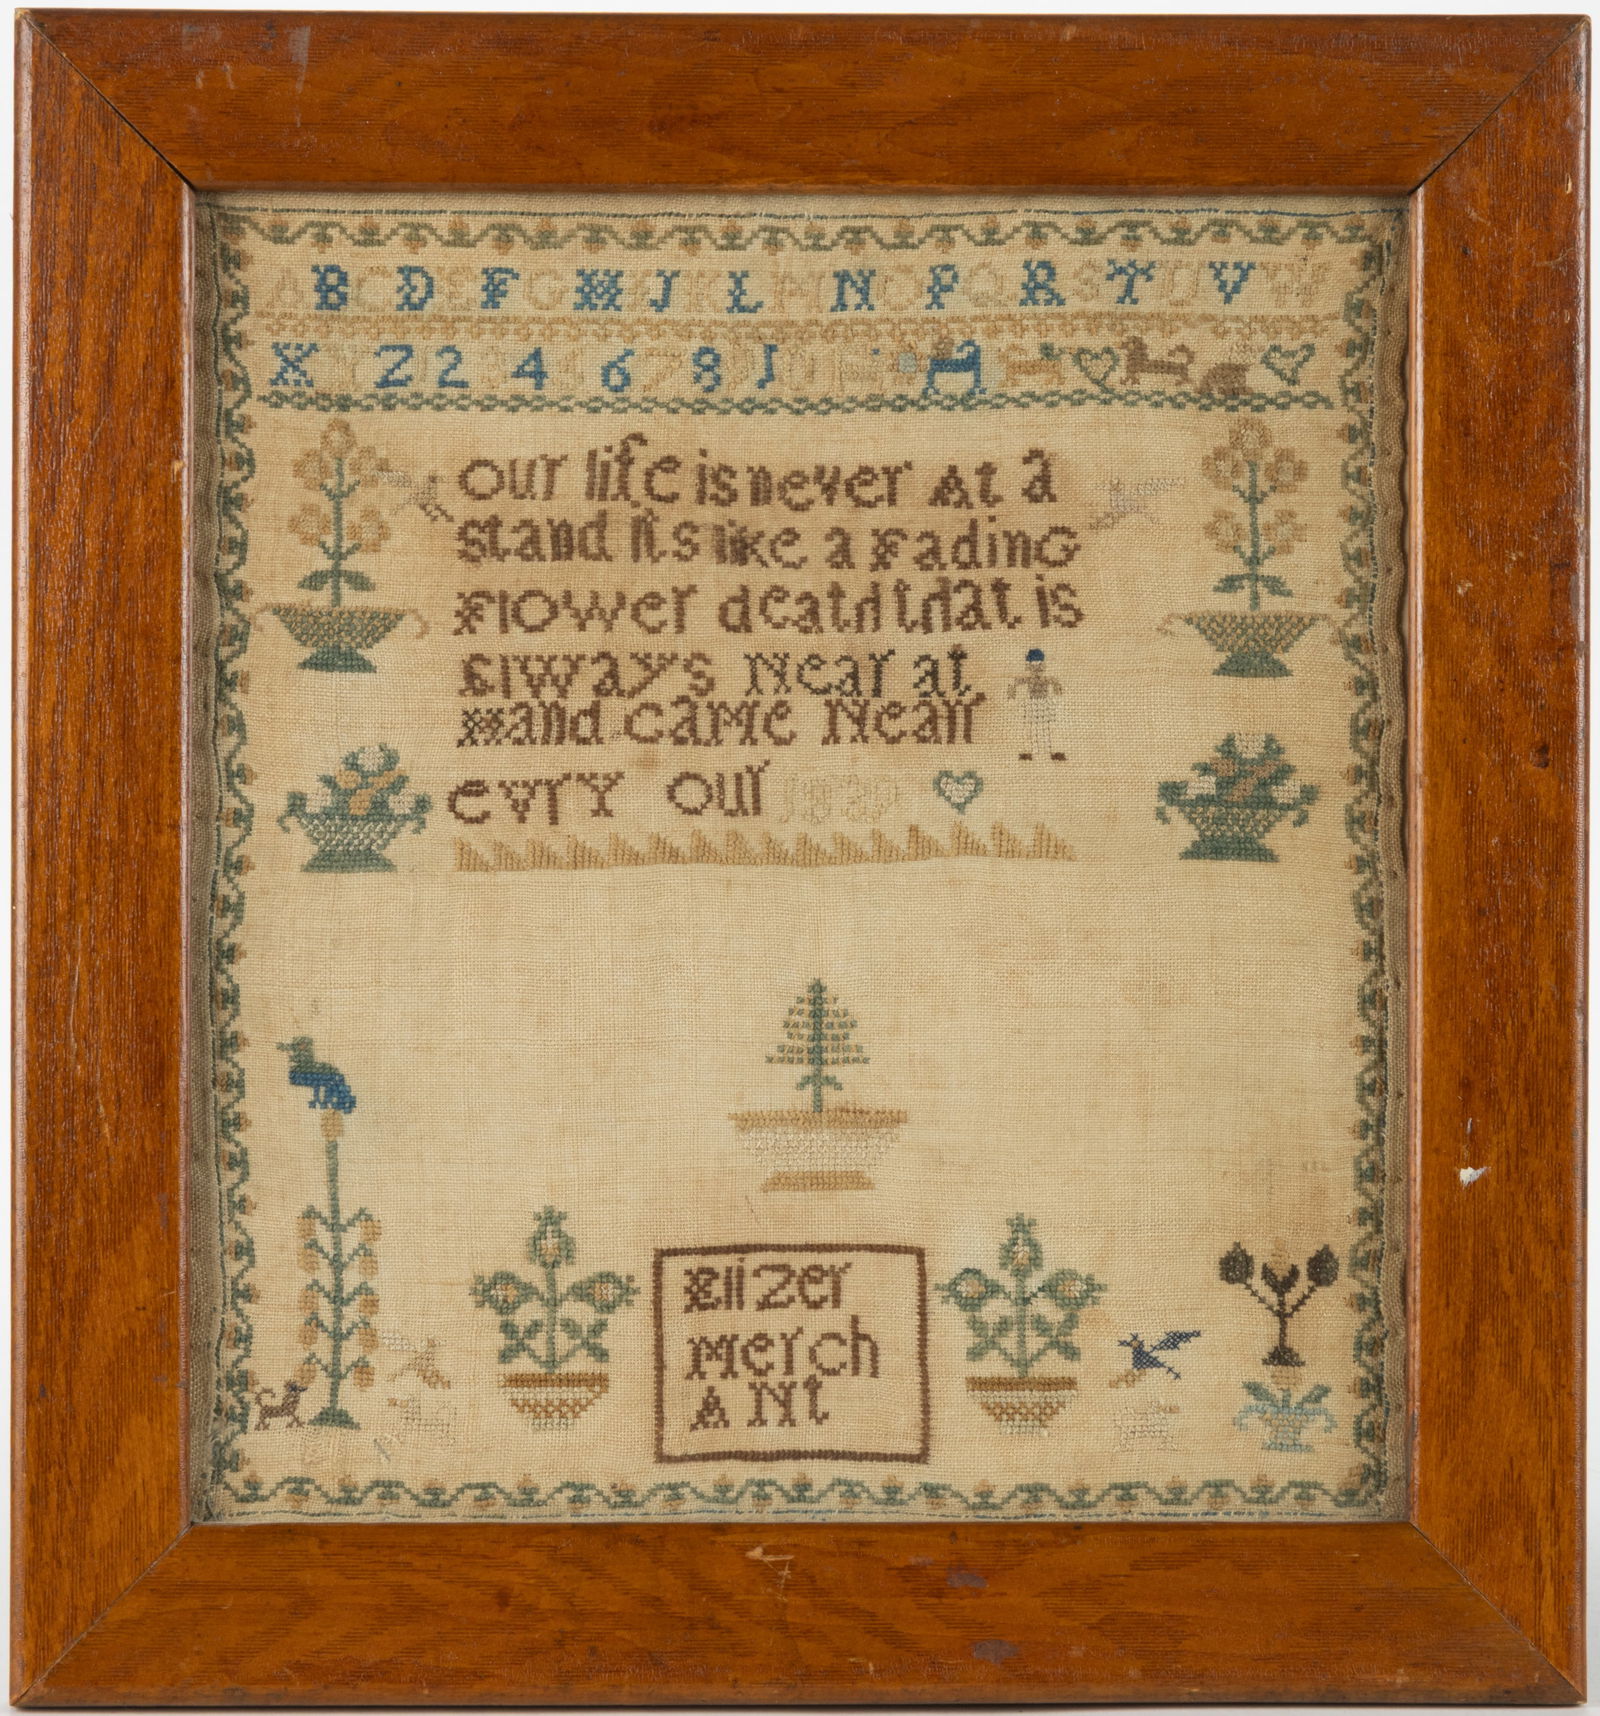 A B C D E F G H I J K L M N O P Q R S T U V W
X Y Z 2 4 6 7 8
our life is never At a
stand its like a Fading
Flower death that is
Always Near at
Hand Came Near
evry our
Elizer
Merch
ANt